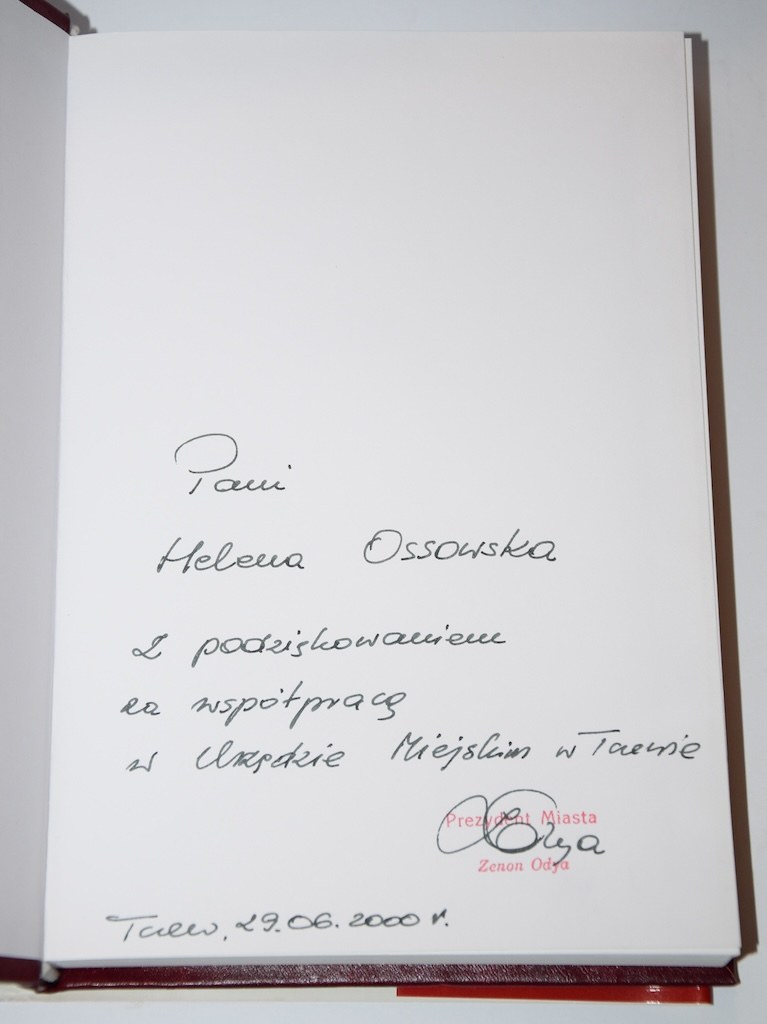 Pani
Helena Ossowska
Z podziękowaniem
za współpracę
w Urzędzie Miejskim w Tczewie
Prezydent Miasta
Zenon Odya
Tczew, 29.06.2000 r.